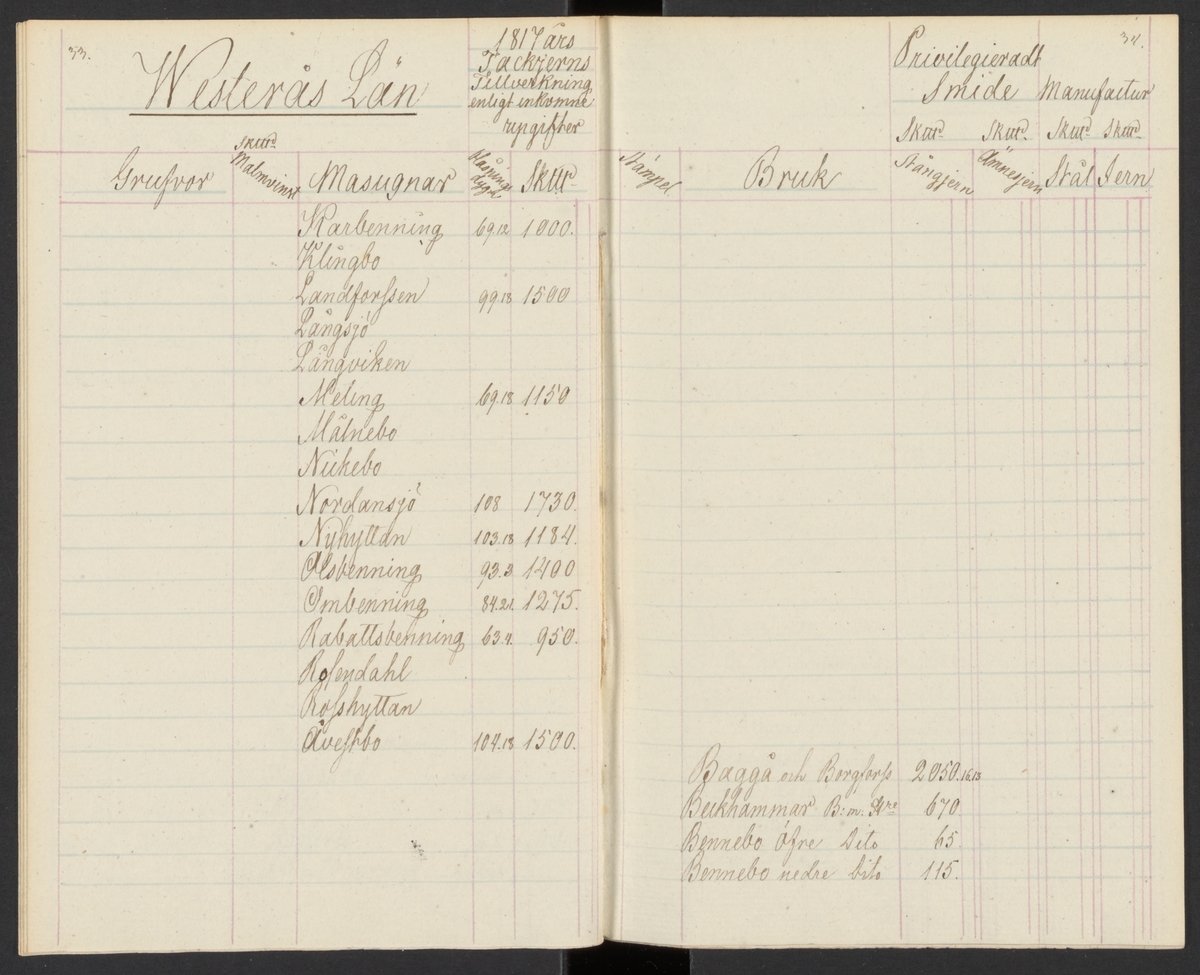 33.
Westerås Län
1817 års
Tackjerns
Tillverkning
enligt inkomne
upgifter
Grufvor
Skttr
Malmvinst
Masugnar
Blåsnings
dygn
Skttr
Karbenning 69.12 1000.
Klingbo
Landforssen 99.18 1500
Långsjö
Långviken
Meling 69.18 1150
Målnebo
Nickebo
Nordansjö 108 1730.
Nyhyttan 103.18 1184.
Olsbenning 93.3 1400
Ombenning 84.21. 1275.
Rabattsbenning 63.4. 950.
Rosendahl
Rosshyttan
Åvestbo 104.18 1500.
34.
Privilegieradt
Smide Manufactur
Skttr Skttr Skttr Skttr
Stämpel
Bruk
Stångjern
Ämnesjern
Stål
Jern
Baggå och Borgforss 2050.16.18
Beckhammar B:m: 670
Bennebo öfre Dito 65
Bennebo nedre Dito 115.